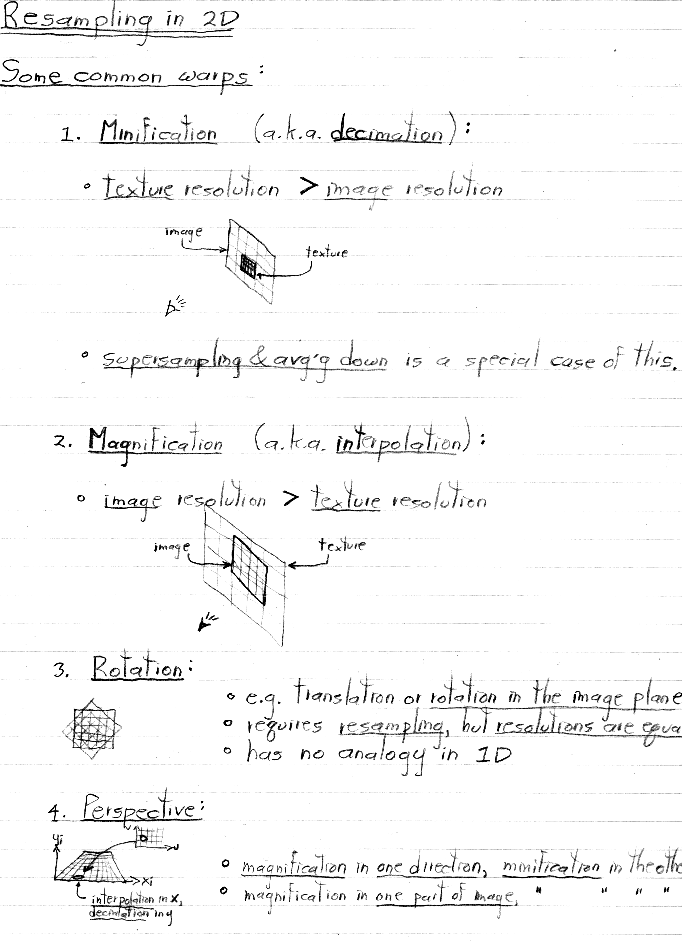 Resampling in 2D
Some common warps:
1. Minification (a.k.a. decimation):
° texture resolution > image resolution
image
texture
° supersampling & avg'g down is a special case of this.
2. Magnification (a.k.a. interpolation):
° image resolution > texture resolution
image
texture
3. Rotation:
° e.g. translation or rotation in the image plane
° requires resampling, but resolutions are equa
° has no analogy in 1D
4. Perspective:
v
yi
u
xi
° magnification in one direction, minification in the othe
interpolation in x,
° magnification in one part of image, " " " "
decimation in y